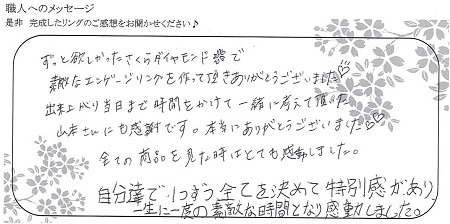 職人へのメッセージ
是非 完成したリングのご感想をお聞かせください♪
ずっと欲しかったさくらダイヤモンドで
素敵なエンゲージリングを作って頂きありがとうございました♡
出来上がり当日まで時間をかけて一緒に考えて頂いた
山本さんにも感謝です。本当にありがとうございました♡♡
全ての商品を見た時はとても感動しました。
自分達で1つずつ全てを決めて特別感があり、
一生に一度の素敵な時間となり感動しました。